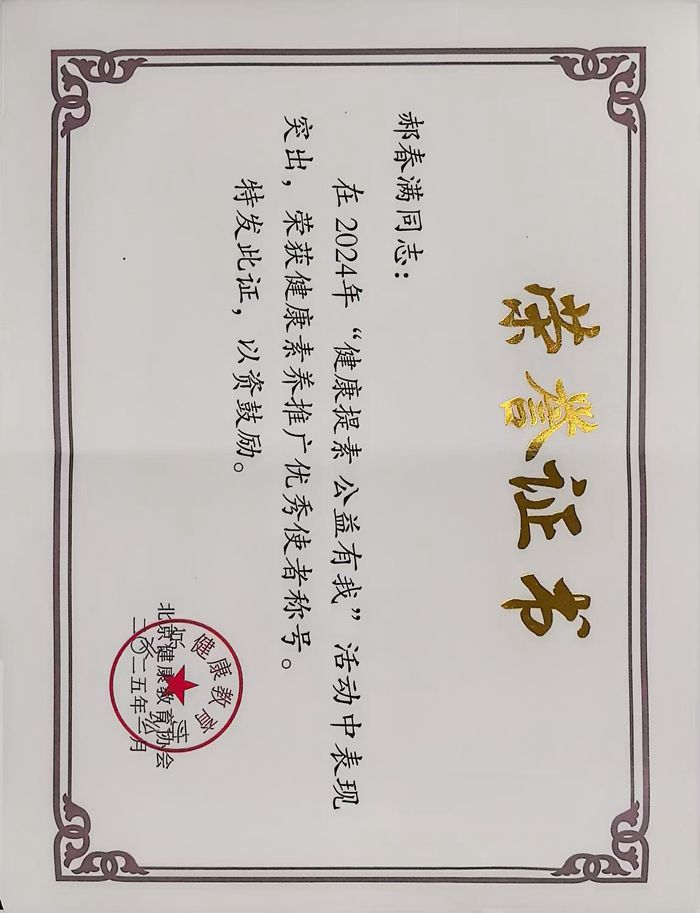 荣誉证书
郝春满同志：
在2024年“健康提素 公益有我”活动中表现
突出，荣获健康素养推广优秀使者称号。
特发此证，以资鼓励。
北京健康教育协会